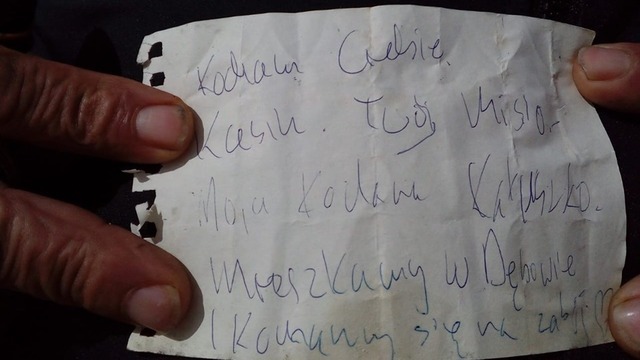 Kocham Ciebie.
Kasiu. Twój Misio.
Moja Kochana
Mieszkamy w Dębowie
I Kochamy się na